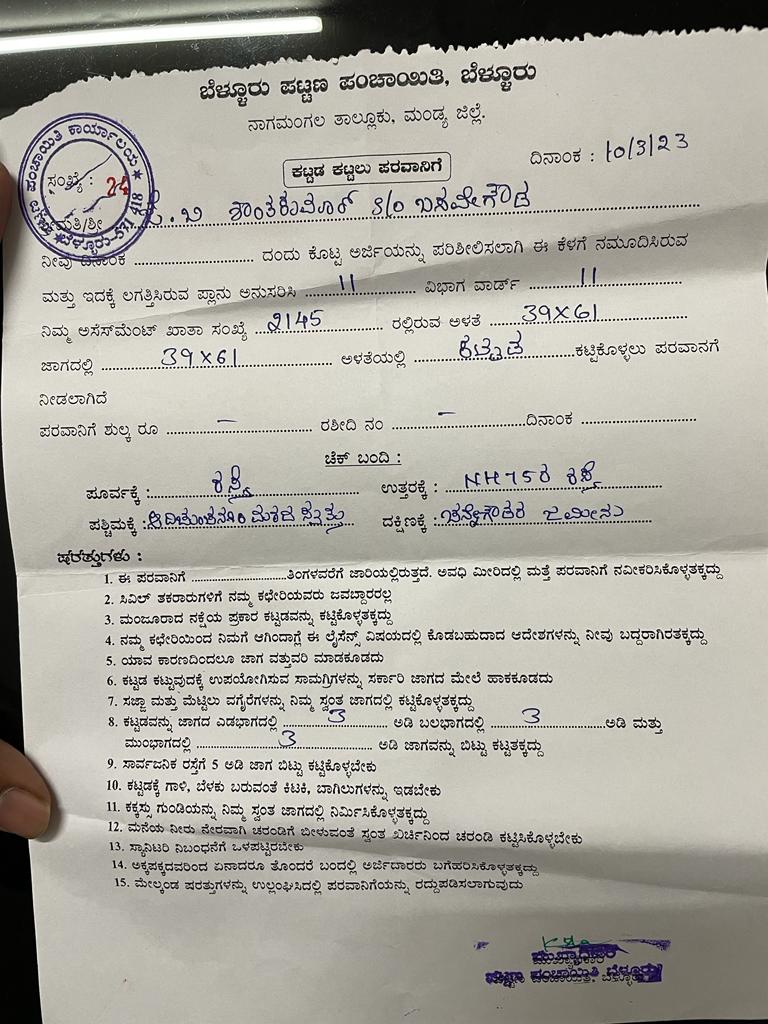 ಬೆಳ್ಳೂರು ಪಟ್ಟಣ ಪಂಚಾಯಿತಿ, ಬೆಳ್ಳೂರು
ನಾಗಮಂಗಲ ತಾಲ್ಲೂಕು, ಮಂಡ್ಯ ಜಿಲ್ಲೆ.
ಪಂಚಾಯಿತಿ ಕಾರ್ಯಾಲಯ ★ ಬೆಳ್ಳೂರು-571 418
ಕಟ್ಟಡ ಕಟ್ಟಲು ಪರವಾನಿಗೆ
ದಿನಾಂಕ : 10/3/23
ಸಂಖ್ಯೆ : 24
ಶ್ರೀಮತಿ/ಶ್ರೀ ಬಿ ಶಾಂತಕುಮಾರ್ S/o ಬಸವೇಗೌಡ
ನೀವು ದಿನಾಂಕ ............ ದಂದು ಕೊಟ್ಟ ಅರ್ಜಿಯನ್ನು ಪರಿಶೀಲಿಸಲಾಗಿ ಈ ಕೆಳಗೆ ನಮೂದಿಸಿರುವ
ಮತ್ತು ಇದಕ್ಕೆ ಲಗತ್ತಿಸಿರುವ ಪ್ಲಾನು ಅನುಸರಿಸಿ 11 ವಿಭಾಗ ವಾರ್ಡ್ 11
ನಿಮ್ಮ ಅಸೆಸ್‌ಮೆಂಟ್ ಖಾತಾ ಸಂಖ್ಯೆ 2145 ರಲ್ಲಿರುವ ಅಳತೆ 39X61
ಜಾಗದಲ್ಲಿ 39X61 ಅಳತೆಯಲ್ಲಿ ಕಟ್ಟಡ ಕಟ್ಟಿಕೊಳ್ಳಲು ಪರವಾನಗೆ
ನೀಡಲಾಗಿದೆ
ಪರವಾನಿಗೆ ಶುಲ್ಕ ರೂ — ರಶೀದಿ ನಂ — ದಿನಾಂಕ ............
ಚೆಕ್ ಬಂದಿ :
ಪೂರ್ವಕ್ಕೆ : ರಸ್ತೆ ಉತ್ತರಕ್ಕೆ : NH75ರ ರಸ್ತೆ
ಪಶ್ಚಿಮಕ್ಕೆ : ಆದಿಚುಂಚನಗಿರಿ ಮಠದ ಸ್ವತ್ತು ದಕ್ಷಿಣಕ್ಕೆ : ಚನ್ನೇಗೌಡರ ಜಮೀನು
ಷರತ್ತುಗಳು :
1. ಈ ಪರವಾನಿಗೆ ............ತಿಂಗಳವರೆಗೆ ಜಾರಿಯಲ್ಲಿರುತ್ತದೆ. ಅವಧಿ ಮೀರಿದಲ್ಲಿ ಮತ್ತೆ ಪರವಾನಿಗೆ ನವೀಕರಿಸಿಕೊಳ್ಳತಕ್ಕದ್ದು
2. ಸಿವಿಲ್ ತಕರಾರುಗಳಿಗೆ ನಮ್ಮ ಕಛೇರಿಯವರು ಜವಬ್ದಾರರಲ್ಲ
3. ಮಂಜೂರಾದ ನಕ್ಷೆಯ ಪ್ರಕಾರ ಕಟ್ಟಡವನ್ನು ಕಟ್ಟಿಕೊಳ್ಳತಕ್ಕದ್ದು
4. ನಮ್ಮ ಕಛೇರಿಯಿಂದ ನಿಮಗೆ ಆಗಿಂದಾಗ್ಗೆ ಈ ಲೈಸೆನ್ಸ್ ವಿಷಯದಲ್ಲಿ ಕೊಡಬಹುದಾದ ಆದೇಶಗಳನ್ನು ನೀವು ಬದ್ದರಾಗಿರತಕ್ಕದ್ದು
5. ಯಾವ ಕಾರಣದಿಂದಲೂ ಜಾಗ ವತ್ತುವರಿ ಮಾಡಕೂಡದು
6. ಕಟ್ಟಡ ಕಟ್ಟುವುದಕ್ಕೆ ಉಪಯೋಗಿಸುವ ಸಾಮಗ್ರಿಗಳನ್ನು ಸರ್ಕಾರಿ ಜಾಗದ ಮೇಲೆ ಹಾಕಕೂಡದು
7. ಸಜ್ಜಾ ಮತ್ತು ಮೆಟ್ಟಿಲು ವಗೈರೆಗಳನ್ನು ನಿಮ್ಮ ಸ್ವಂತ ಜಾಗದಲ್ಲಿ ಕಟ್ಟಿಕೊಳ್ಳತಕ್ಕದ್ದು
8. ಕಟ್ಟಡವನ್ನು ಜಾಗದ ಎಡಭಾಗದಲ್ಲಿ 3 ಅಡಿ ಬಲಭಾಗದಲ್ಲಿ 3 ಅಡಿ ಮತ್ತು
ಮುಂಭಾಗದಲ್ಲಿ 3 ಅಡಿ ಜಾಗವನ್ನು ಬಿಟ್ಟು ಕಟ್ಟತಕ್ಕದ್ದು
9. ಸಾರ್ವಜನಿಕ ರಸ್ತೆಗೆ 5 ಅಡಿ ಜಾಗ ಬಿಟ್ಟು ಕಟ್ಟಿಕೊಳ್ಳಬೇಕು
10. ಕಟ್ಟಡಕ್ಕೆ ಗಾಳಿ, ಬೆಳಕು ಬರುವಂತೆ ಕಿಟಕಿ, ಬಾಗಿಲುಗಳನ್ನು ಇಡಬೇಕು
11. ಕಕ್ಕಸ್ಸು ಗುಂಡಿಯನ್ನು ನಿಮ್ಮ ಸ್ವಂತ ಜಾಗದಲ್ಲಿ ನಿರ್ಮಿಸಿಕೊಳ್ಳತಕ್ಕದ್ದು
12. ಮನೆಯ ನೀರು ನೇರವಾಗಿ ಚರಂಡಿಗೆ ಬೀಳುವಂತೆ ಸ್ವಂತ ಖರ್ಚಿನಿಂದ ಚರಂಡಿ ಕಟ್ಟಿಸಿಕೊಳ್ಳಬೇಕು
13. ಸ್ಯಾನಿಟರಿ ನಿಬಂಧನೆಗೆ ಒಳಪಟ್ಟಿರಬೇಕು
14. ಅಕ್ಕಪಕ್ಕದವರಿಂದ ಏನಾದರೂ ತೊಂದರೆ ಬಂದಲ್ಲಿ ಅರ್ಜಿದಾರರು ಬಗೆಹರಿಸಿಕೊಳ್ಳತಕ್ಕದ್ದು
15. ಮೇಲ್ಕಂಡ ಷರತ್ತುಗಳನ್ನು ಉಲ್ಲಂಘಿಸಿದಲ್ಲಿ ಪರವಾನಿಗೆಯನ್ನು ರದ್ದುಪಡಿಸಲಾಗುವುದು
ಮುಖ್ಯಾಧಿಕಾರಿ
ಪಟ್ಟಣ ಪಂಚಾಯಿತಿ, ಬೆಳ್ಳೂರು